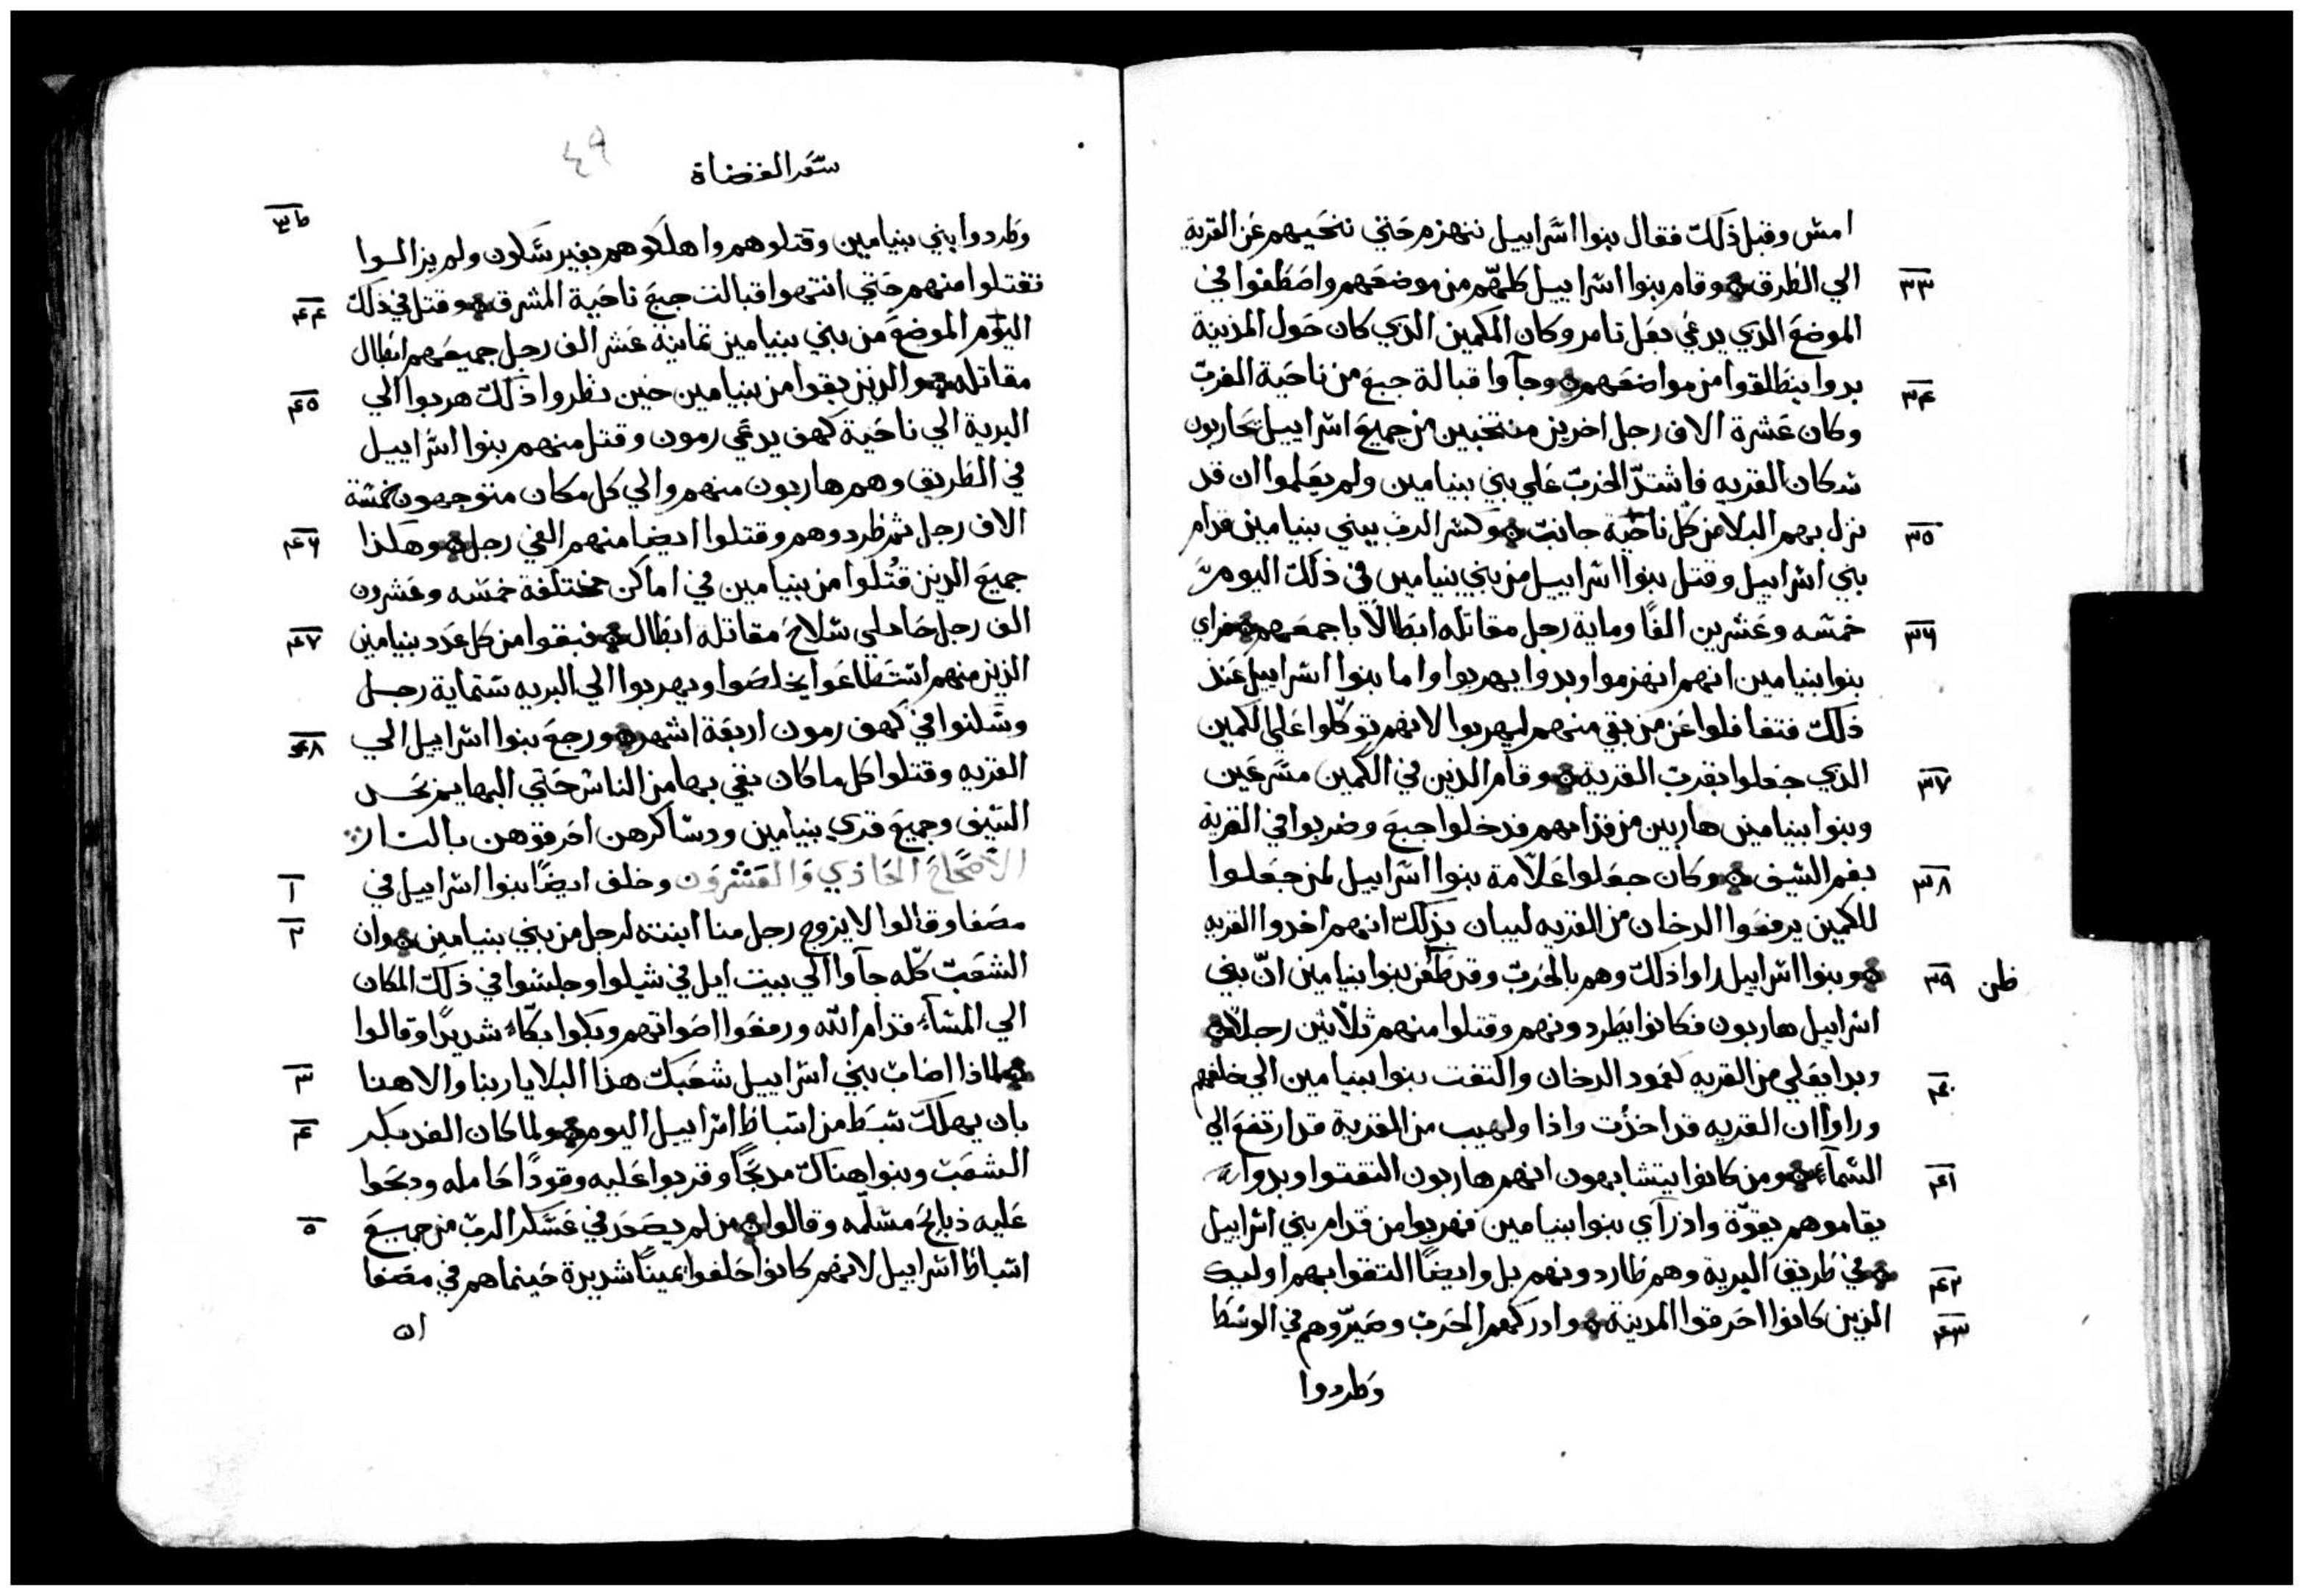 امس وقبل ذلك فقال بنوا اسراييل ننهزم حتي ننحيهم عن القرية
٣٣ الي الطرق وقام بنوا اسراييل كلهّم من موضعهم واصطفوا في
الموضع الذي يدعي بعل تامر وكان المكمين الذي كان حول المدينة
٣٤ بدوا ينطلقوا من مواضعهم وجآوا قبالة جبع من ناحية الغرب
وكان عشرة الاف رجل اخرين منتخبين من جميع اسراييل يحاربون
سكان القريه فاشتدّ الحرب علي بني بنيامين ولم يعلموا ان قد
٣٥ نزل بهم البلا من كل ناحية جانب وكسر الرب بيني بنيامين قدام
بني اسراييل وقتل بنوا اسراييل من بني بنيامين في ذلك اليوم
٣٦ خمسه وعشرين الفًا وماية رجل مقاتله ابطالًا باجمعهم فراي
بنوا بنيامين انهم انهزموا وبدوا يهربوا واما بنوا اسراييل عند
ذلك فتغافلوا عن من بقي منهم ليهربوا لانهم توكّلوا علي الكمين
٣٧ الذي جعلوا بقرب القرية وقام الذين في الكمين مسرعين
وبنوا بنيامين هاربين من قدامهم فدخلوا جبع وضربوا في القرية
٣٨ بفم السيف وكان جعلوا علامة بنوا اسراييل لمن جعلوا
للكمين يرفعوا الدخان من القريه لبيان بذلك انهم اخدوا القريه
٣٩ ظن وبنوا اسراييل راوا ذلك وهم بالحرب وقد ظن بنوا بنيامين انّ بني
اسراييل هاربون فكانوا يطردونهم وقتلوا منهم ثلاثين رجلًا
٤٠ وبدا يعلي من القريه كعمود الدخان والتفت بنوا بنيامين الي خلفهم
وراوا ان القريه قد اخذت واذا ولهيب من القرية قد ارتفع الي
٤١ السمآء ومن كانوا يتشابهون انهم هاربون التفتوا وبدوا
يقاموهم بقوّة واذ رآي بنوا بنيامين فهربوا من قدام بني اسراييل
٤٢ في طريق البرية وهم طاردونهم بل وايضًا التقوا بهم اوليك
٤٣ الذين كانوا احرقوا المدينة وادركهم الحرب وصيّروهم في الوسط
وطردوا
سفر القضاة
٤٩
وطردوا بني بنيامين وقتلوهم واهلكوهم بغير سكون ولم يزالوا
٤٤ تقتلوا منهم حتي انتهوا قبالت جبع ناحية المشرق وقتل في ذلك
اليوم الموضع من بني بنيامين ثمانية عشر الف رجل جميعهم ابطال
٤٥ مقاتله والذين بقوا من بنيامين حين نظروا ذلك هربوا الي
البرية الي ناحية كهف يدعي رمون وقتل منهم بنوا اسراييل
في الطريق وهم هاربون منهم والي كل مكان متوجهون خمسة
٤٦ الاف رجل ثم طردوهم وقتلوا ايضا منهم الفي رجل وهكذا
جميع الذين قُتلوا من بنيامين في اماكن مختلفة خمسه وعشرون
٤٧ الف رجل حاملي سلاح مقاتلة ابطال فبقوا من كل عدد بنيامين
الذين منهم استطاعوا يخلصوا ويهربوا الي البريه ستماية رجل
٤٨ وسكنوا في كهف رمون اربعة اشهر ورجع بنوا اسراييل الي
القريه وقتلوا كل ما كان بقي بها من الناس حتي البهايم بحد
السيف وجميع قري بنيامين ودساكرهن احرقوهن بالنار
١ الأصحاح الحادي والعشرون وخلف ايضًا بنوا اسراييل في
٢ مصفا وقالوا لا يزوج رجل منا ابنته لرجل من بني بنيامين وان
الشعب كلّه جآوا الي بيت ايل في شيلوا وجلسوا في ذلك المكان
الي المسآء قدام الله ورفعوا اصواتهم وبكوا بكاءً شديدًا وقالوا
٣ لماذا اصاب بيني اسراييل شعبك هذا البلا يا ربنا والاهنا
٤ بان يهلك سبط من اسباط اسراييل اليوم ولما كان الغد بكر
الشعب وبنوا هناك مدبحًا وقربوا عليه وقودًا حامله ودبحوا
٥ عليه ذبايح مسلّمه وقالوا من لم يصعد في عسكر الرب من جميع
اسباط اسراييل لانهم كانوا حلفوا يمينًا شديدة حينما هم في مصفا